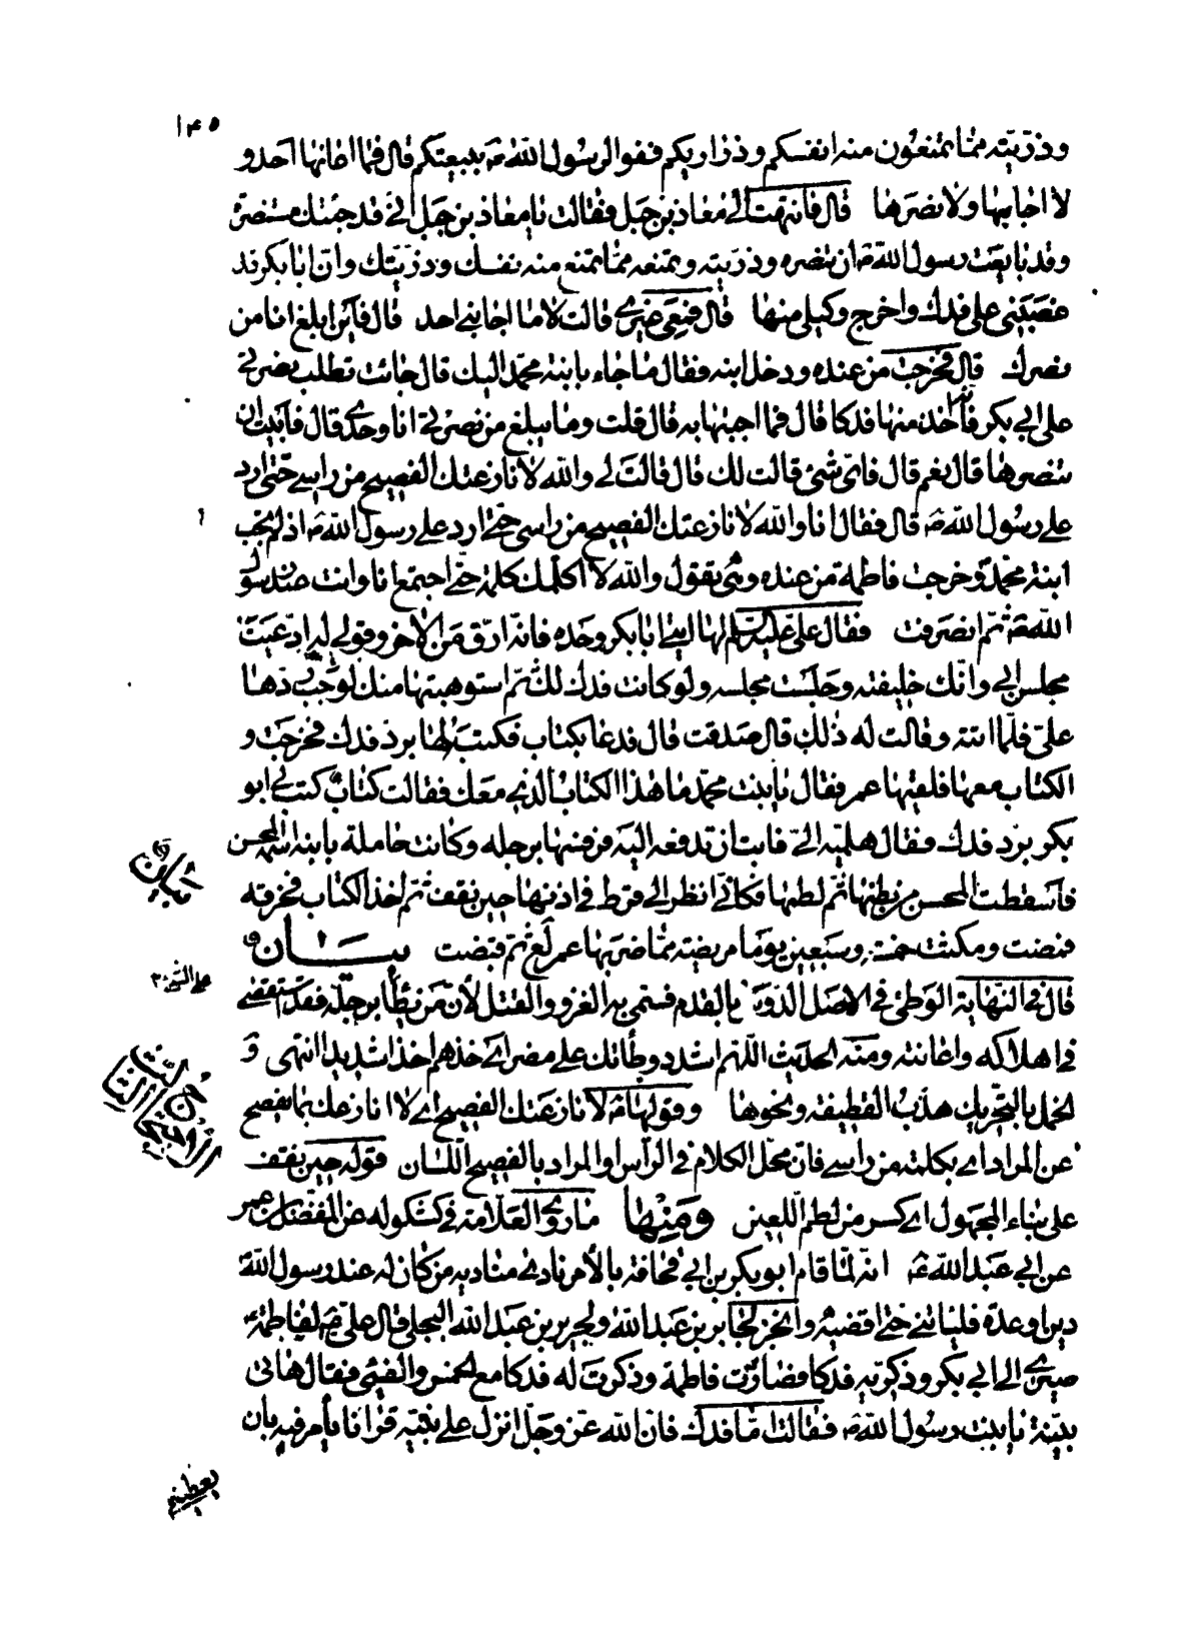 ١٤٥
وذرّيّته ممّا تمنعون منه انفسكم وذراريكم ففوا لرسول اللّه ص ببيعتكم قال فما اعانها احد و
لا اجابها ولا نصرها قال فانتهت الى معاذ بن جبل فقالت يا معاذ بن جبل انّى قد جئتك مستنصرة
وقد بايعت رسول اللّه ص ان تنصره وذرّيته وتمنعه ممّا تمنع منه نفسك وذرّيتك وانّ ابا بكر قد
غصبنى على فدك واخرج وكيلى منها قال فمعى غيرى قالت لا ما اجابنى احد قال فاين ابلغ انا من
نصرك قال فخرجت من عنده ودخل ابنه فقال ما جاء بابنة محمّد اليك قال جائت تطلب نصرتى
على ابى بكر فانّه اخذ منها فدكا قال فما اجبتها به قال قلت وما يبلغ من نصرتى انا وحدى قال فابيت ان
تنصرها قال نعم قال فاىّ شئ قالت لك قال قالت لى واللّه لانازعنّك الفصيح من راسى حتّى ارد
على رسول اللّه ص قال فقال انا واللّه لانازعنّك الفصيح من راسى حتّى ارد على رسول اللّه ص اذ لم تجب
ابنة محمّد وخرجت فاطمة من عنده وهى تقول واللّه لا اكلّمك كلمة حتّى اجتمع انا وانت عند رسول
اللّه ص ثمّ انصرفت فقال علىّ عليه السلم لها ايتى ابا بكر وحده فانّه ارقّ من الاخر وقولى له ادّعيت
مجلس ابى وانّك خليفته وجلست مجلسه ولو كانت فدك لك ثمّ استوهبتها منك لوجب ردّها
علىّ فلمّا اتته وقالت له ذلك قال صدقت قال فدعا بكتاب فكتبه لها بردّ فدك فخرجت و
الكتاب معها فلقيها عمر فقال يا بنت محمّد ما هذا الكتاب الّذى معك فقالت كتاب كتب لى ابو
بكر بردّ فدك فقال هلمّيه الىّ فابت ان تدفعه اليه فرفسها برجله وكانت حاملة بابن اسمه المحسن
فاسقطت المحسن من بطنها ثمّ لطمها فكانّى انظر الى قرط فى اذنها حين نقف ثمّ اخذ الكتاب فخرقه
فمضت ومكثت خمسة وسبعين يوما مريضة ممّا ضربها عمر لع ثمّ قبضت بيــان
قال فى النّهاية الوطئ فى الاصل الدّوس بالقدم فسمّى به الغزو والقتل لأنّ من يطأ برجله فقد استقصى
فى هلاكه واهانته ومنه الحديث اللّهم اشدد وطأتك على مضر اى خذهم اخذا شديدا انتهى و
الخمل بالتّحريك هدب القطيفة ونحوها وقولها ص لانازعنّك الفصيح اى لانازعنّك بما يفصح
عن المراد اى بكلمة من راسى فانّ محلّ الكلام فى الرّأس او المراد بالفصيح اللّسان قوله حين نقفت
على بناء المجهول اى كسر من لطم اللّعين ومنها ما روى العلّامة فى كشكوله عن المفضّل بن عمر
عن ابى عبد اللّه ع انّه لمّا قام ابو بكر بن ابى قحافة بالأمر نادى مناديه من كان له عند رسول اللّه
دين او عدة فلياتنى حتّى اقضيه وانجز لجابر بن عبد اللّه ولجرير بن عبد اللّه البجلى قال علىّ ع لفاطمة ع
صيرى الى ابى بكر وذكّريه فدكا فصارت فاطمة وذكرت له فدكا مع الخمس والفئ فقال هاتى
بيّنة يا بنت رسول اللّه ص فقالت امّا فدك فانّ اللّه عزّ وجلّ انزل على نبيّه قرانا يأمر فيه بان
يعطينى